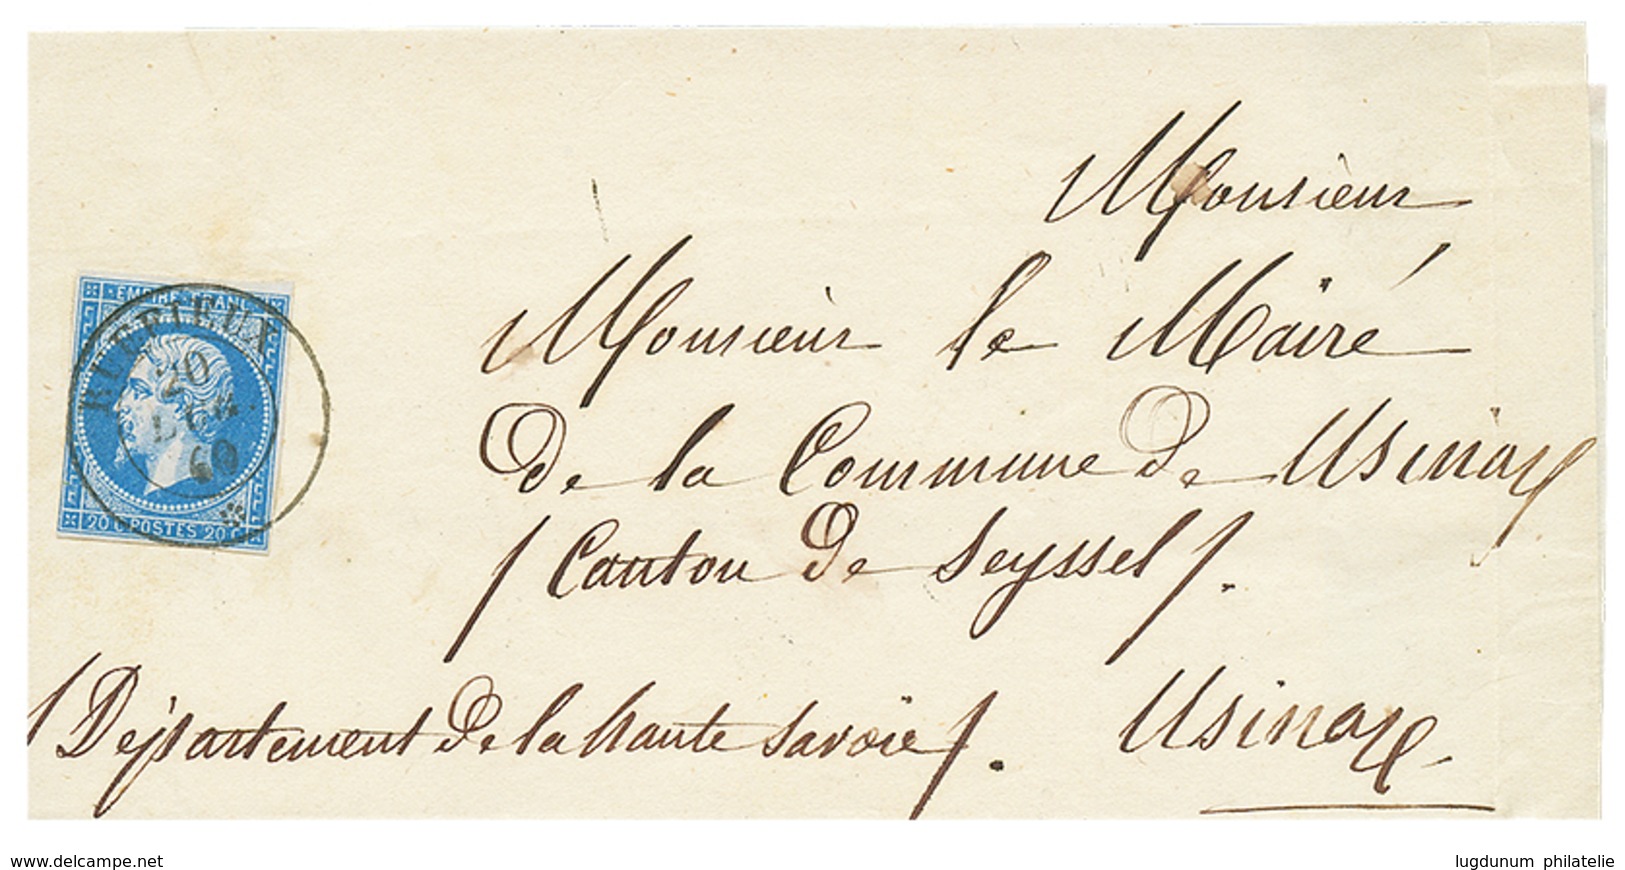 EMPIRE FRANC
RUFFIEUX
20
DEC.
60
20 C POSTES 20 C
Monsieur
Monsieur le Mairé
de la Commune de Usinax
/ Canton de Seyssel /.
/ Département de la haute Savoie /. Usinax
www.delcampe.net
lugdunum philatelie